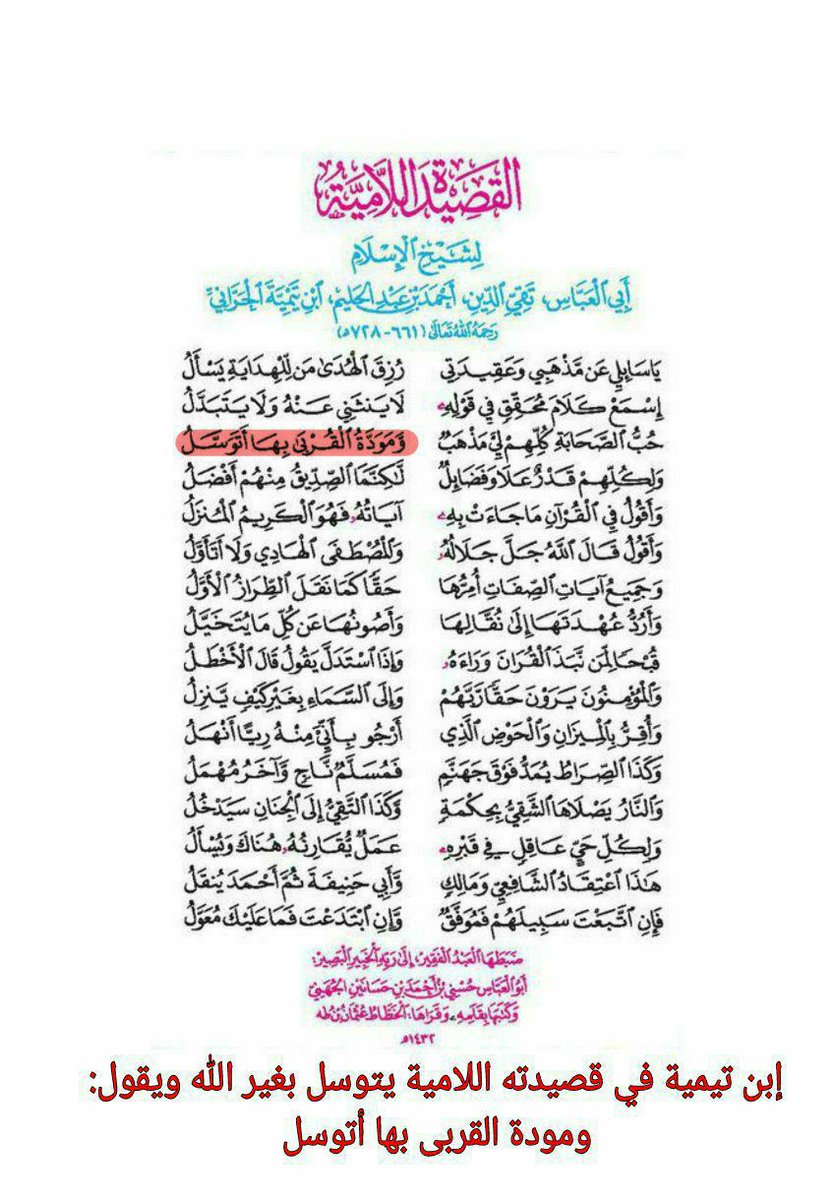 القصيدة اللامية
لشيخ الإسلام
أبي العباس، تقي الدين، أحمد بن عبد الحليم، ابن تيمية الحراني
رحمه الله تعالى (٦٦١-٧٢٨هـ)
يَا سَائِلِي عَن مَّذْهَبِي وَعَقِيدَتِي رُزِقَ الْهُدَىٰ مَن لِّلْهِدَايَةِ يَسْأَلُ
إِسْمَعْ كَلَامَ مُحَقِّقٍ فِي قَوْلِهِ لَا يَنثَنِي عَنْهُ وَلَا يَتَبَدَّلُ
حُبُّ الصَّحَابَةِ كُلِّهِمْ لِي مَذْهَبٌ وَمَوَدَّةُ الْقُرْبَىٰ بِهَا أَتَوَسَّلُ
وَلِكُلِّهِمْ قَدْرٌ عَلَا وَفَضَائِلٌ لَٰكِنَّمَا الصِّدِّيقُ مِنْهُمْ أَفْضَلُ
وَأَقُولُ فِي الْقُرْآنِ مَا جَاءَتْ بِهِ آيَاتُهُ فَهُوَ الْكَرِيمُ الْمُنزَلُ
وَأَقُولُ قَالَ اللَّهُ جَلَّ جَلَالُهُ وَالْمُصْطَفَى الْهَادِي وَلَا أَتَأَوَّلُ
وَجَمِيعُ آيَاتِ الصِّفَاتِ أُمِرُّهَا حَقًّا كَمَا نَقَلَ الطِّرَازُ الْأَوَّلُ
وَأَرُدُّ عُهْدَتَهَا إِلَىٰ نُقَّالِهَا وَأَصُونُهَا عَن كُلِّ مَا يُتَخَيَّلُ
قُبْحًا لِّمَن نَّبَذَ الْقُرَانَ وَرَاءَهُ وَإِذَا اسْتَدَلَّ يَقُولُ قَالَ الْأَخْطَلُ
وَالْمُؤْمِنُونَ يَرَوْنَ حَقًّا رَبَّهُمْ وَإِلَى السَّمَاءِ بِغَيْرِ كَيْفٍ يَنزِلُ
وَأُقِرُّ بِالْمِيزَانِ وَالْحَوْضِ الَّذِي أَرْجُو بِأَنِّي مِنْهُ رِيًّا أَنْهَلُ
وَكَذَا الصِّرَاطُ يُمَدُّ فَوْقَ جَهَنَّمٍ فَمُسَلَّمٌ نَّاجٍ وَآخَرُ مُهْمَلُ
وَالنَّارُ يَصْلَاهَا الشَّقِيُّ بِحِكْمَةٍ وَكَذَا التَّقِيُّ إِلَى الْجِنَانِ سَيَدْخُلُ
وَلِكُلِّ حَيٍّ عَاقِلٍ فِي قَبْرِهِ عَمَلٌ يُقَارِنُهُ هُنَاكَ وَيُسْأَلُ
هَٰذَا اعْتِقَادُ الشَّافِعِيِّ وَمَالِكٍ وَأَبِي حَنِيفَةَ ثُمَّ أَحْمَدَ يُنقَلُ
فَإِنِ اتَّبَعْتَ سَبِيلَهُمْ فَمُوَفَّقٌ وَإِنِ ابْتَدَعْتَ فَمَا عَلَيْكَ مُعَوَّلُ
ضبطها العبد الفقير، إلى ربه الخبير البصير:
أبو العباس حسني بن أحمد بن حسانين الجهني
وكتبها بقلمه، وقرأها: الخطاط عثمان بن طه
١٤٣٢هـ
إبن تيمية في قصيدته اللامية يتوسل بغير الله ويقول:
ومودة القربى بها أتوسل